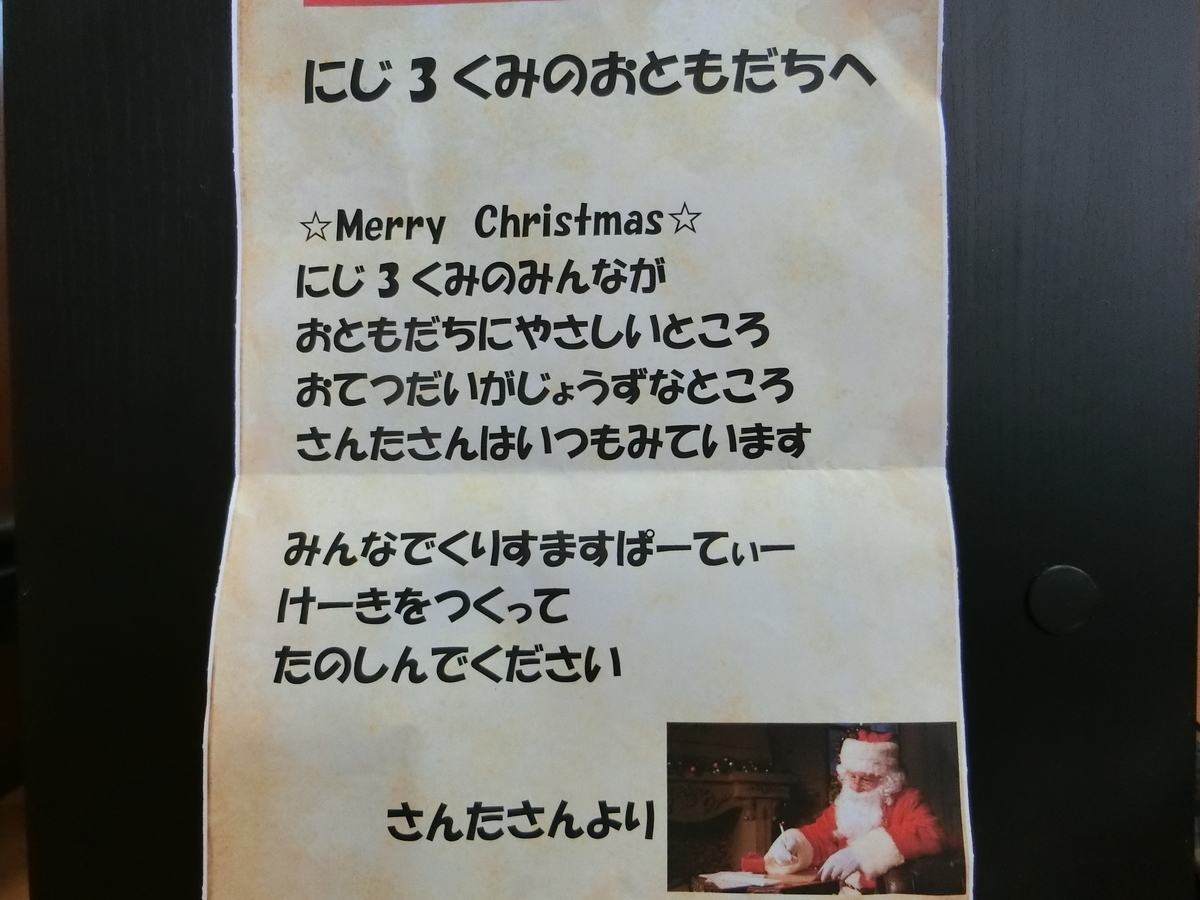 にじ３くみのおともだちへ
☆Merry Christmas☆
にじ３くみのみんなが
おともだちにやさしいところ
おてつだいがじょうずなところ
さんたさんはいつもみています
みんなでくりすますぱーてぃー
けーきをつくって
たのしんでください
さんたさんより